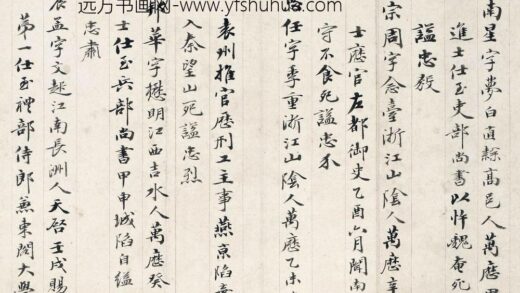 远方书画网-www.yfshuhua.co
南星字夢白直隸高邑人萬曆
進士仕至吏部尚書以忤魏奄死
諡忠毅
宗周字念臺浙江山陰人萬曆辛
士歷官左都御史乙酉六月聞南
守不食死諡忠介
任字季重浙江山陰人萬曆乙未
袁州推官歷刑工主事燕京陷
入秦望山死諡忠烈
華字懋明江西吉水人萬曆癸
士仕至兵部尚書甲申城陷自縊
忠肅
孟字文起江南長洲人天啟壬戌賜
第一仕至禮部侍郎兼東閣大學